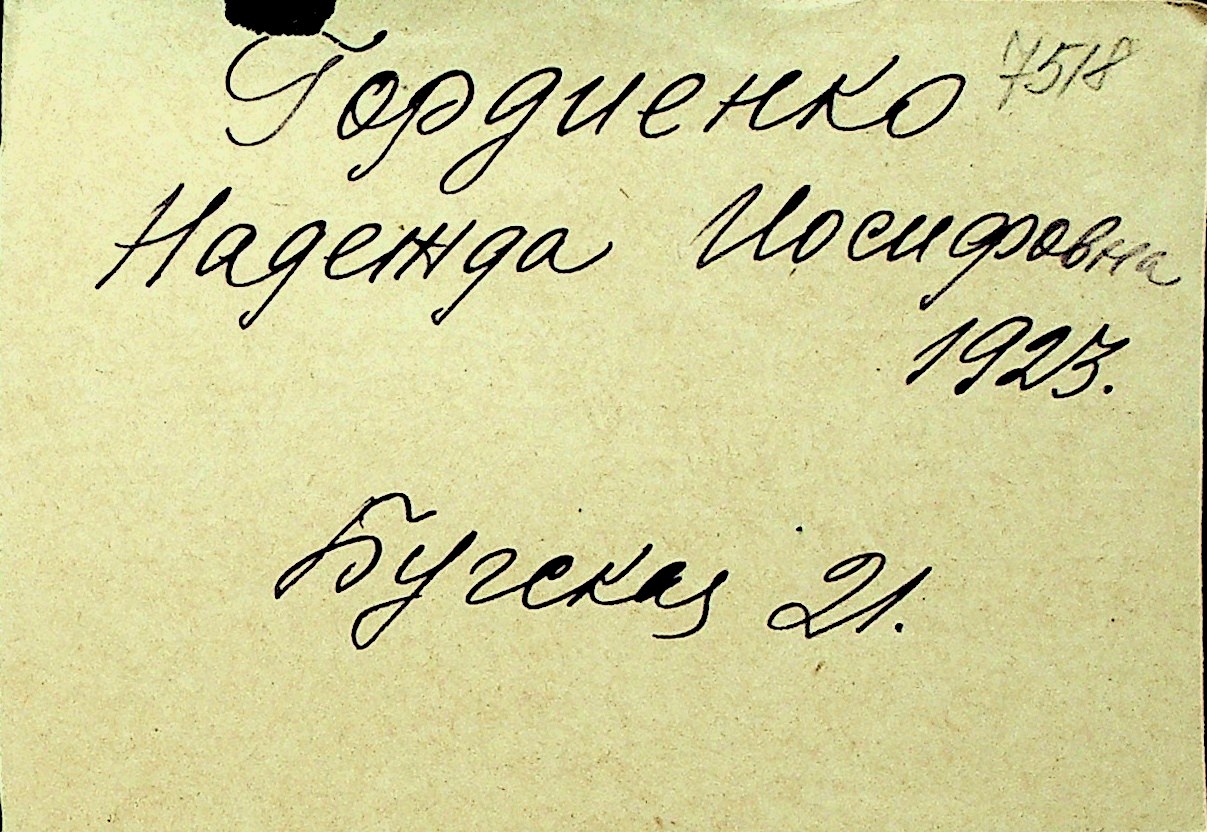 Гордиенко 7518
Надежда Иосифовна
1923.
Бугская 21.